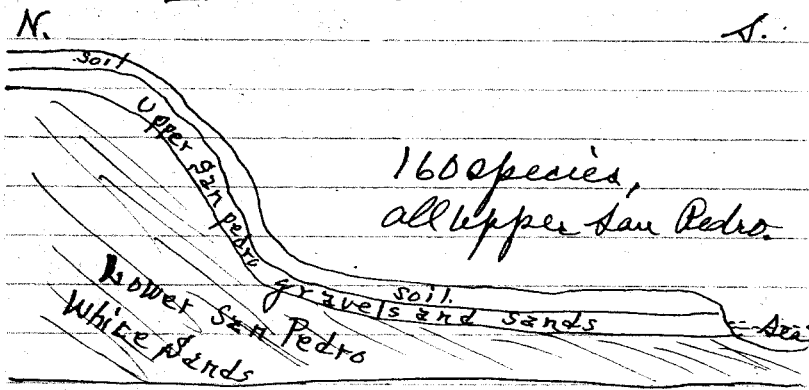 N. S.
soil
Upper San pedro gravels and sands
160 species,
all upper San Pedro.
soil.
Lower San Pedro
White Sands
Sea